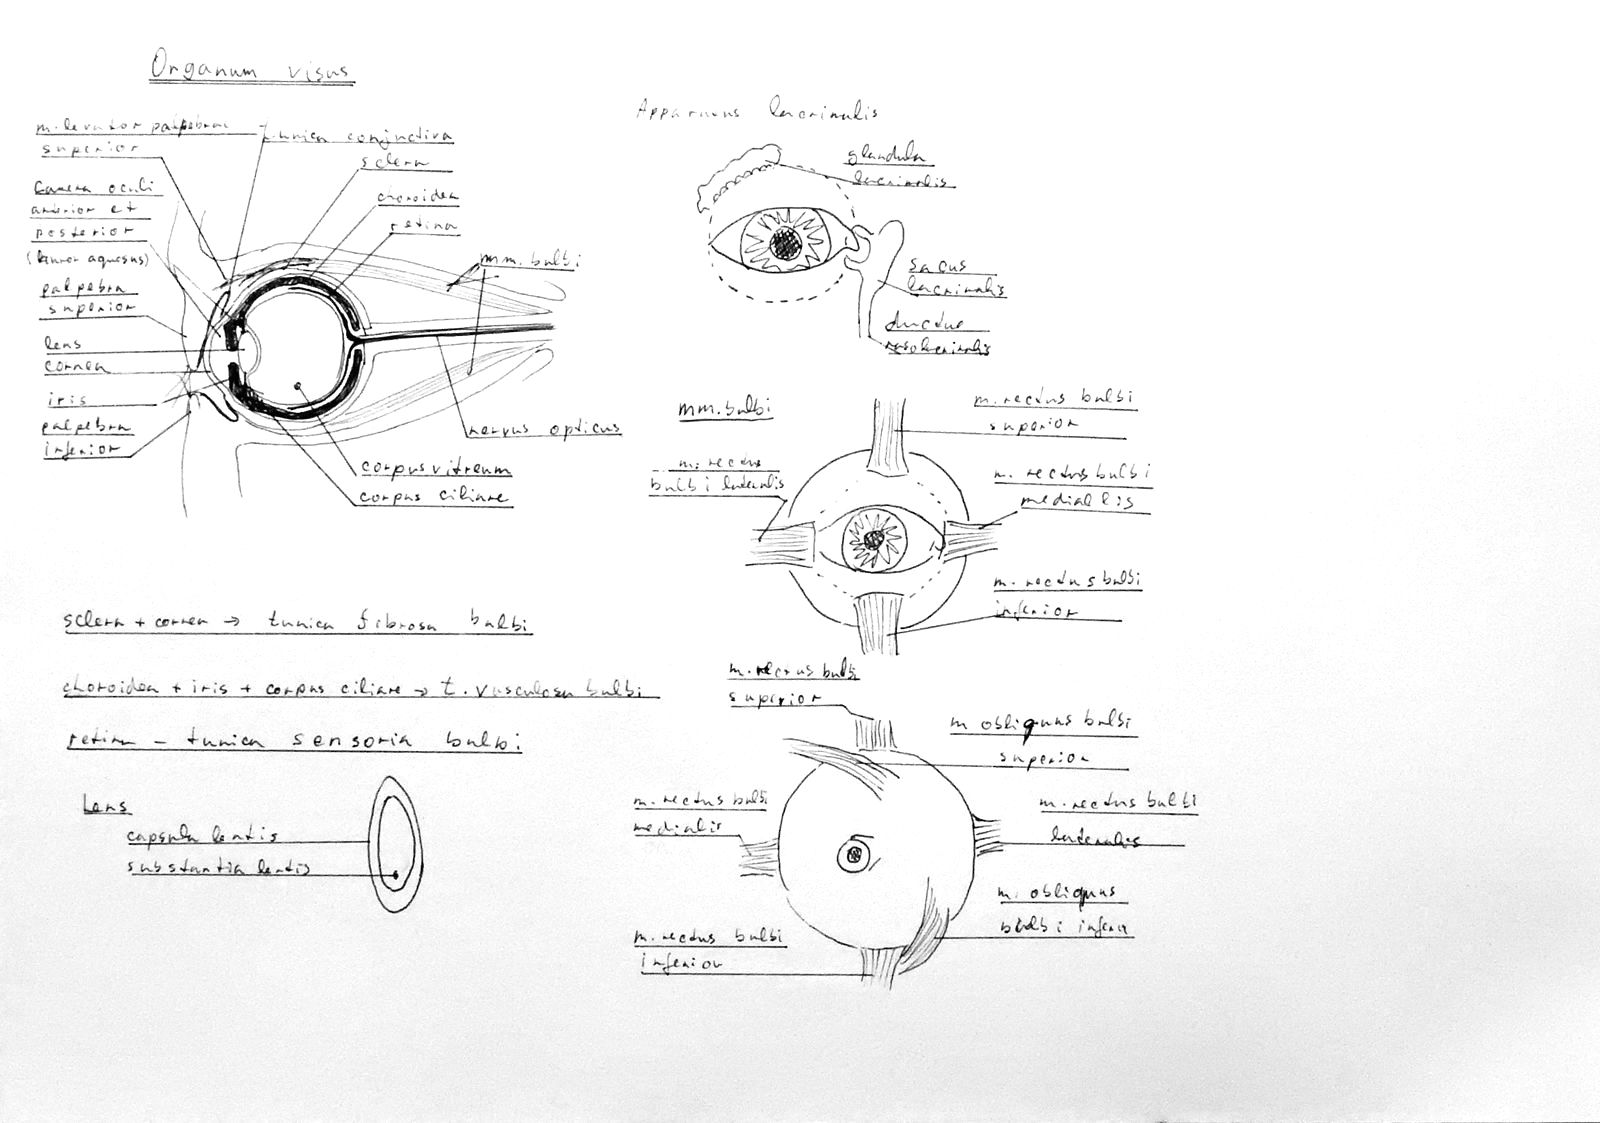 Organum visus
m. levator palpebrae
superior
tunica conjuctiva
sclera
camera oculi
anterior et
posterior
(humor aquosus)
choroidea
retina
mm. bulbi
palpebra
superior
lens
cornea
iris
palpebra
inferior
nervus opticus
corpus vitreum
corpus ciliare
sclera + cornea → tunica fibrosa bulbi
choroidea + iris + corpus ciliare → t. vasculosa bulbi
retina - tunica sensoria bulbi
Lens
capsula lentis
substantia lentis
Apparatus lacrimalis
glandula
lacrimalis
sacus
lacrimalis
ductus
nasolacrimalis
mm. bulbi
m. rectus bulbi
superior
m. rectus
bulbi lateralis
m. rectus bulbi
mediallis
m. rectus bulbi
inferior
m. rectus bulbi
superior
m obliquus bulbi
superior
m. rectus bulbi
medialis
m. rectus bulbi
lateralis
m. obliquus
bulbi inferior
m. rectus bulbi
inferior